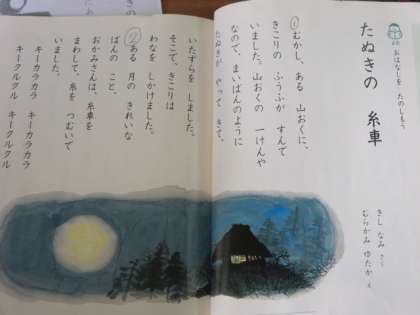 おはなしを たのしもう
たぬきの 糸車
きし なみ さく
むらかみ ゆたか え
①むかし、ある 山おくに、
きこりの ふうふが すんで
いました。山おくの 一けんや
なので、まいばんのように
たぬきが やって きて、
いたずらを しました。
そこで、きこりは
わなを しかけました。
②ある 月の きれいな
ばんの こと、
おかみさんは、糸車を
まわして、糸を つむいで
いました。
キーカラカラ キーカラカラ
キークルクル キークルクル